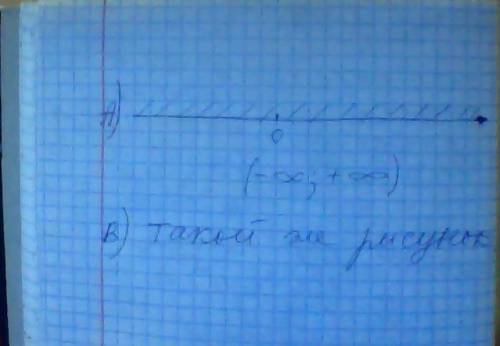 А)
0
(-∞; +∞)
В) такой же рисунок